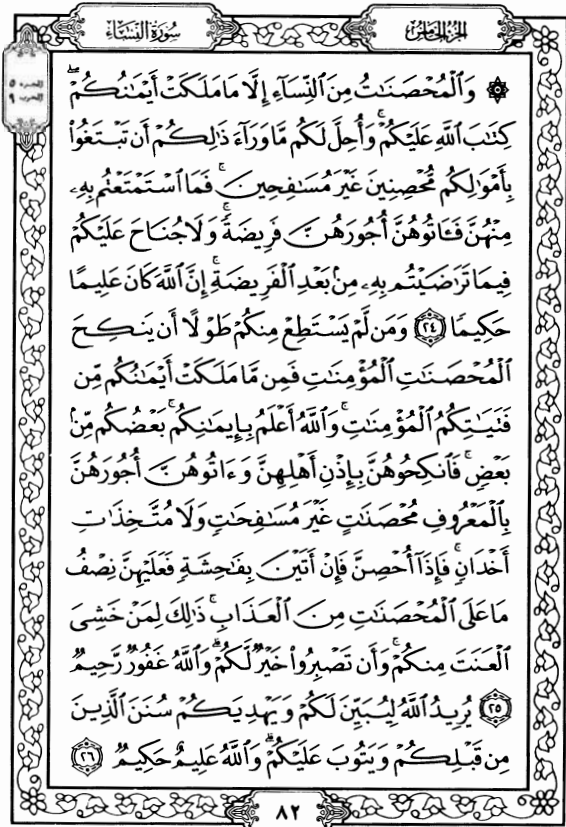 سُورَةُ النِّسَاءِ
الجُزْءُ الخَامِسُ
الجزء ٥
الحزب ٩
۞ وَالْمُحْصَنَاتُ مِنَ النِّسَاءِ إِلَّا مَا مَلَكَتْ أَيْمَانُكُمْ ۖ
كِتَابَ اللَّهِ عَلَيْكُمْ ۚ وَأُحِلَّ لَكُم مَّا وَرَاءَ ذَٰلِكُمْ أَن تَبْتَغُوا
بِأَمْوَالِكُم مُّحْصِنِينَ غَيْرَ مُسَافِحِينَ ۚ فَمَا اسْتَمْتَعْتُم بِهِ
مِنْهُنَّ فَـَٔاتُوهُنَّ أُجُورَهُنَّ فَرِيضَةً ۚ وَلَا جُنَاحَ عَلَيْكُمْ
فِيمَا تَرَاضَيْتُم بِهِ مِن بَعْدِ الْفَرِيضَةِ ۚ إِنَّ اللَّهَ كَانَ عَلِيمًا
حَكِيمًا ٢٤ وَمَن لَّمْ يَسْتَطِعْ مِنكُمْ طَوْلًا أَن يَنكِحَ
الْمُحْصَنَاتِ الْمُؤْمِنَاتِ فَمِن مَّا مَلَكَتْ أَيْمَانُكُم مِّن
فَتَيَاتِكُمُ الْمُؤْمِنَاتِ ۚ وَاللَّهُ أَعْلَمُ بِإِيمَانِكُم ۚ بَعْضُكُم مِّن
بَعْضٍ ۚ فَانكِحُوهُنَّ بِإِذْنِ أَهْلِهِنَّ وَءَاتُوهُنَّ أُجُورَهُنَّ
بِالْمَعْرُوفِ مُحْصَنَاتٍ غَيْرَ مُسَافِحَاتٍ وَلَا مُتَّخِذَاتِ
أَخْدَانٍ ۚ فَإِذَا أُحْصِنَّ فَإِنْ أَتَيْنَ بِفَاحِشَةٍ فَعَلَيْهِنَّ نِصْفُ
مَا عَلَى الْمُحْصَنَاتِ مِنَ الْعَذَابِ ۚ ذَٰلِكَ لِمَنْ خَشِيَ
الْعَنَتَ مِنكُمْ ۚ وَأَن تَصْبِرُوا خَيْرٌ لَّكُمْ ۗ وَاللَّهُ غَفُورٌ رَّحِيمٌ
٢٥ يُرِيدُ اللَّهُ لِيُبَيِّنَ لَكُمْ وَيَهْدِيَكُمْ سُنَنَ الَّذِينَ
مِن قَبْلِكُمْ وَيَتُوبَ عَلَيْكُمْ ۗ وَاللَّهُ عَلِيمٌ حَكِيمٌ ٢٦
٨٢